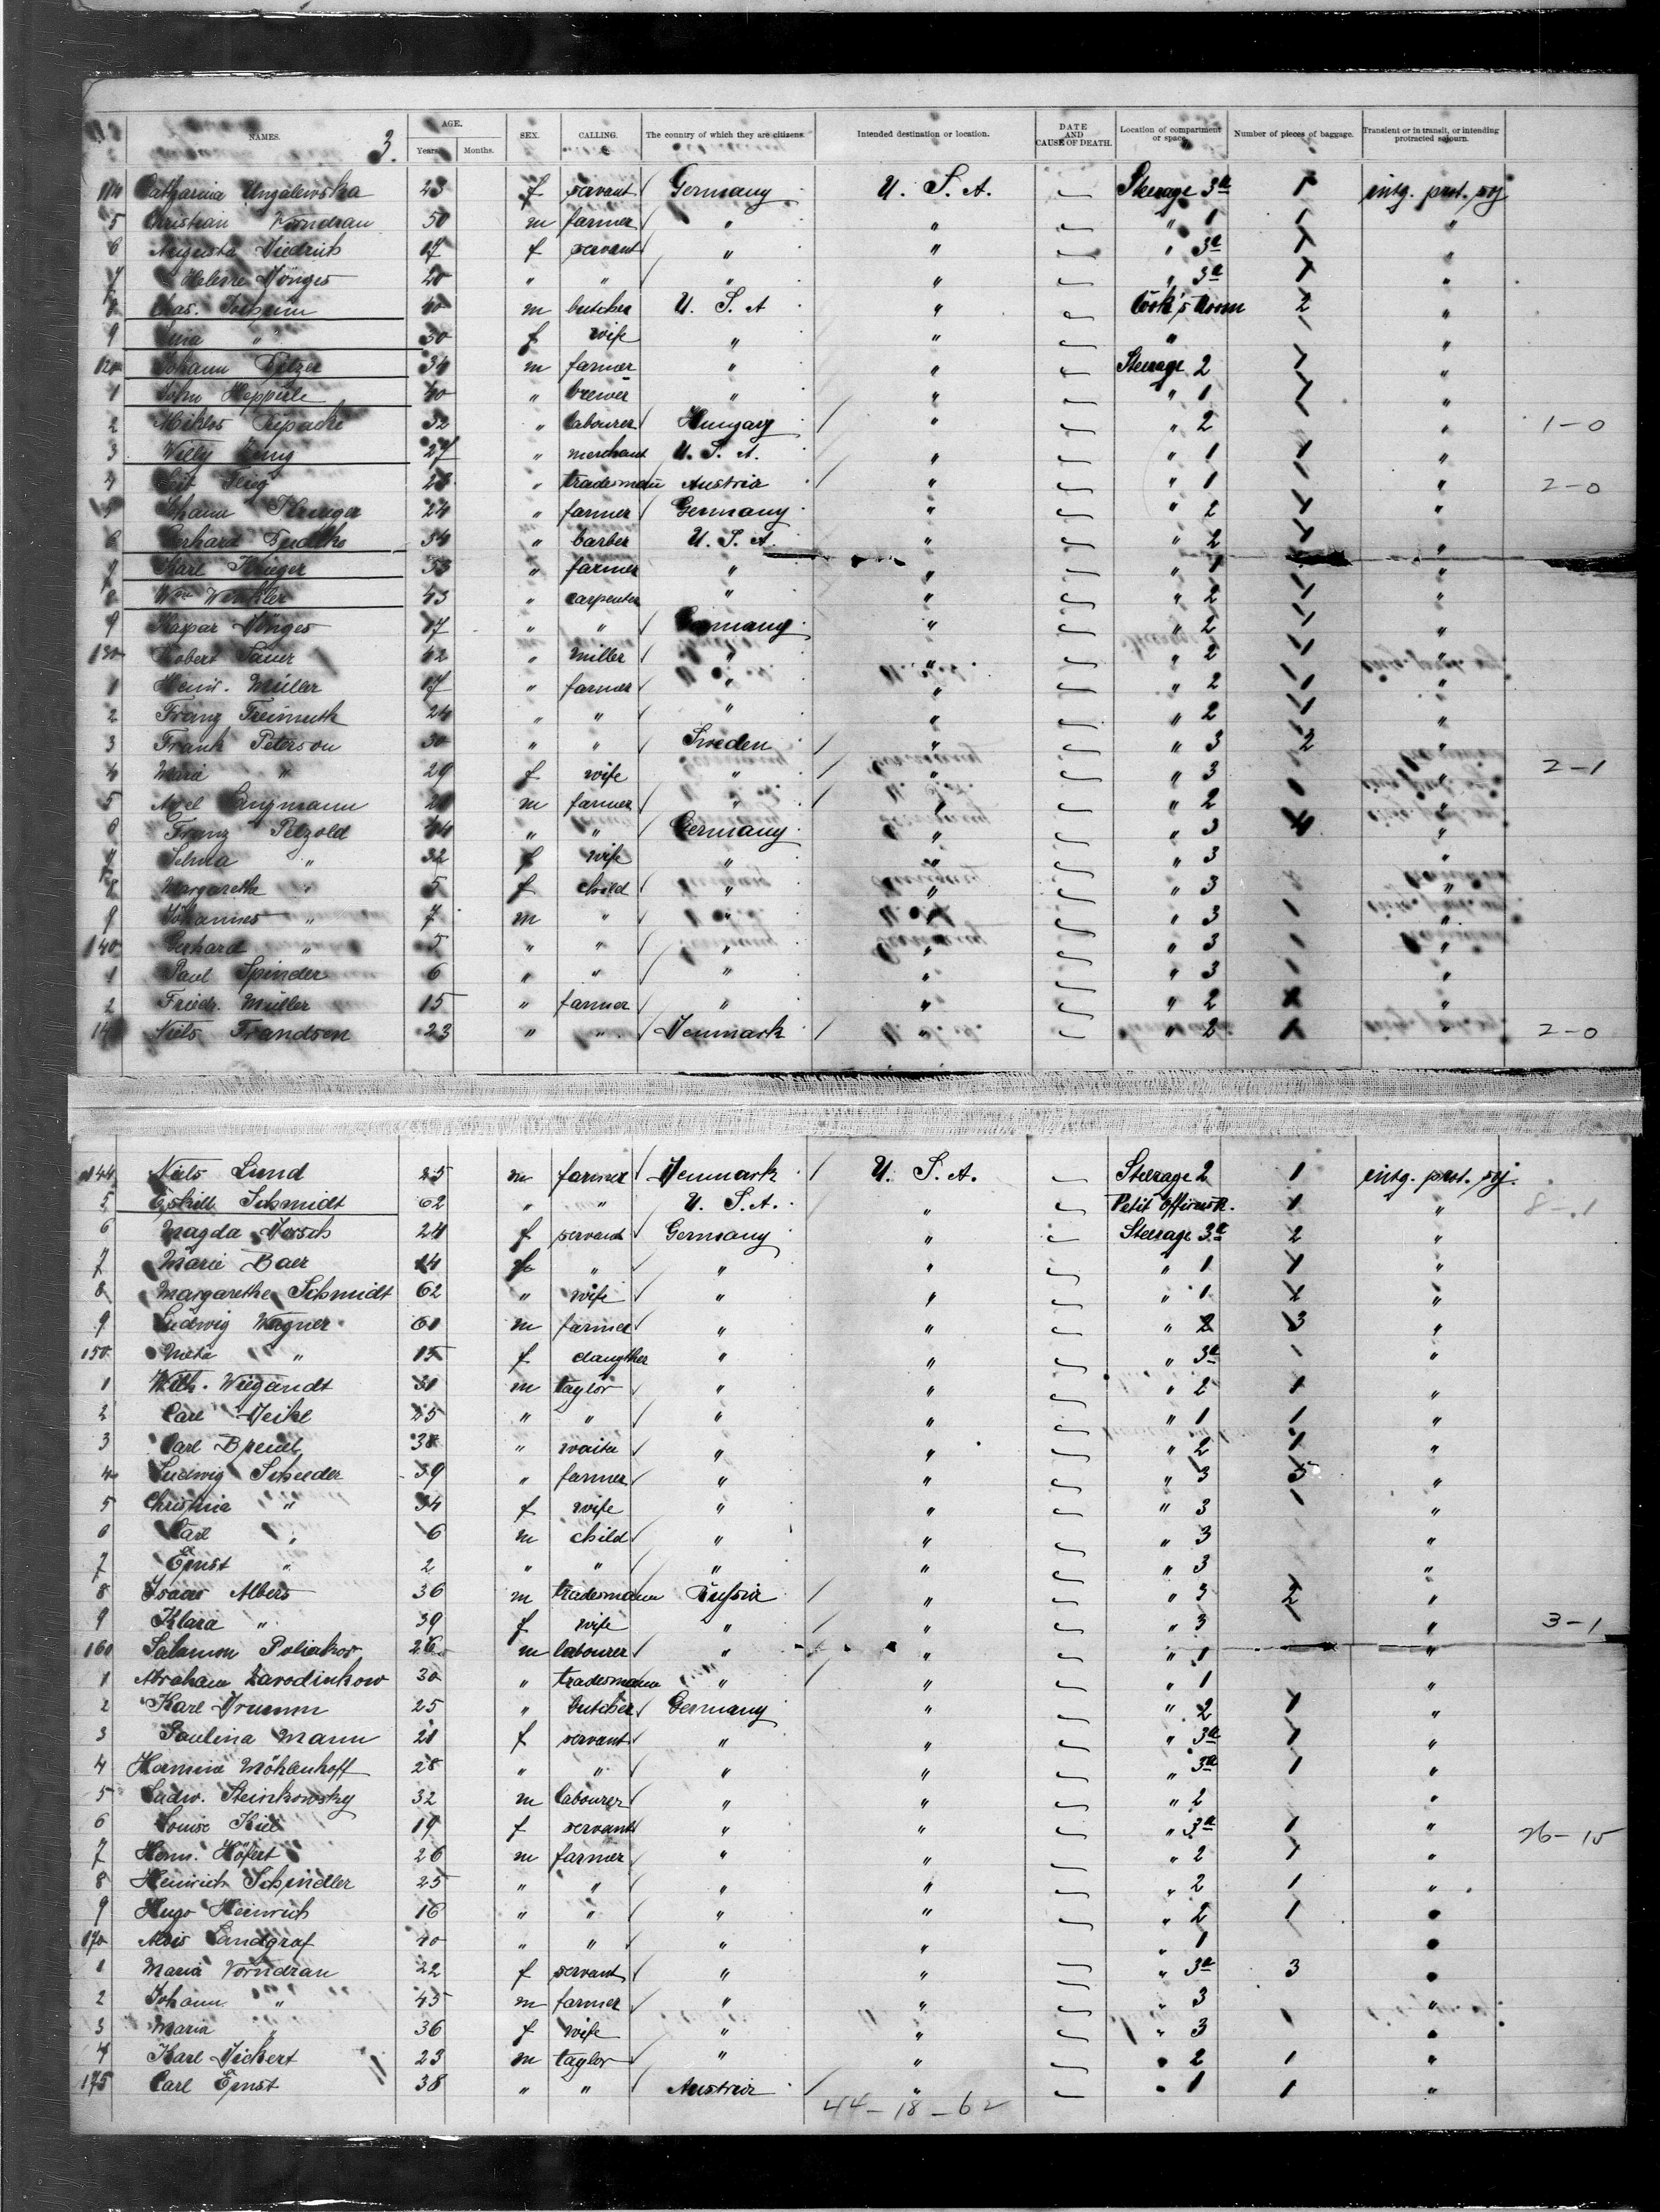 3.
NAMES. AGE. Years. Months. SEX. CALLING. The country of which they are citizens. Intended destination or location. DATE AND CAUSE OF DEATH. Location of compartment or space. Number of pieces of baggage. Transient or in transit, or intending protracted sojourn.
114 Catharina Ungalewska 23 f servant Germany U. S. A. Steerage 3a 1 intg. prot. soj
5 Christian Vorndran 50 m farmer " " " 1 1 "
6 Augusta Diedrich 17 f servant " " " 3a 1 "
7 Helene Dönges 20 " " " " " 3a 1 "
8 Chas. 40 m butcher U. S. A " Cook's Room 2 "
9 Lina " 30 f wife " " " "
120 Johann 34 m farmer " " Steerage 2 1 "
1 John Hepperle 40 " brewer " " " 1 1 "
2 Miklos 32 " labourer Hungary " " 2 " 1-0
3 Willy 27 " merchant U. S. A. " " 1 1 "
4 23 " tradesman Austria " " 1 1 " 2-0
5 Johann 24 " farmer Germany " " 2 1 "
6 Gerhard 34 " barber U. S. A. " " 2 1 "
7 Karl Krieger 53 " farmer " " " 1 1 "
8 Wm Winkler 43 " carpenter " " " 2 1 "
9 Kaspar Dönges 17 " " Germany " " 2 1 "
130 Robert Sauer 42 " miller " " " 2 1 "
1 Heinr. Müller 17 " farmer " " " 2 1 "
2 Franz Freimuth 24 " " " " " 2 1 "
3 Frank Peterson 30 " " Sweden " " 3 2 "
4 Maria " 29 f wife " " " 3 " 2-1
5 Axel Bergmann 21 m farmer " " " 2 1 "
6 Franz Petzold 44 " " Germany " " 3 4 "
7 Selma " 32 f wife " " " 3 "
8 Margareth " 5 f child " " " 3 "
9 Johannes " 7 m " " " " 3 "
140 Gerhard " 5 " " " " " 3 "
1 Paul Spinder 6 " " " " " 3 "
2 Friedr. Müller 15 " farmer " " " 2 1 "
143 Niels Frandsen 23 " " Denmark " " 2 1 " 2-0
144 Niels Lund 25 m farmer Denmark U. S. A. Steerage 2 1 intg. prot. soj.
5 Eskild Schmidt 62 " " U. S. A. " Petit Officers R. 1 " 8-1
6 Magda Dorsch 24 f servant Germany " Steerage 3a 2 "
7 Marie Baer 14 f " " " " 1 1 "
8 Margarethe Schmidt 62 " wife " " " 1 1 "
9 Ludwig Wagner 61 m farmer " " " 2 3 "
150 Meta " 15 f daugther " " " 3a "
1 Wilh. Wiegandt 31 m taylor " " " 2 1 "
2 Carl Deikel 25 " " " " " 1 1 "
3 Carl 38 " waiter " " " 2 1 "
4 Ludwig Scheeder 39 " farmer " " " 3 5 "
5 Christina " 34 f wife " " " 3 "
6 Carl " 6 m child " " " 3 "
7 Ernst " 2 " " " " " 3 "
8 Isaac Albers 36 m tradesmann Russia " " 3 2 "
9 Klara " 39 f wife " " " 3 " 3-1
160 Salamon Poliakow 26 m labourer " " " 1 "
1 Abraham Zavodinkow 30 " tradesmann " " " 1 "
2 Karl Drumm 25 " butcher Germany " " 2 1 "
3 Paulina Mann 21 f servant " " " 3a 1 "
4 Hermine Möhlenhoff 28 " " " " " 3a 1 "
5 Ladw. Steinkowsky 32 m labourer " " " 2 "
6 Louise Kiel 19 f servant " " " 3a 1 " 26-15
7 Herm. Höfert 26 m farmer " " " 2 1 "
8 Heinrich Schindler 25 " " " " " 2 1 "
9 Hugo Heinrich 16 " " " " " 2 1 "
170 Alois Landgraf 40 " " " " " 1 "
1 Maria Vorndran 22 f servant " " " 3a 3 "
2 Johann " 45 m farmer " " " 3 "
3 Maria " 36 f wife " " " 3 "
4 Karl Dickert 23 m taylor " " " 2 1 "
175 Carl Ernst 38 " " Austria " " 1 1 "
44-18-62